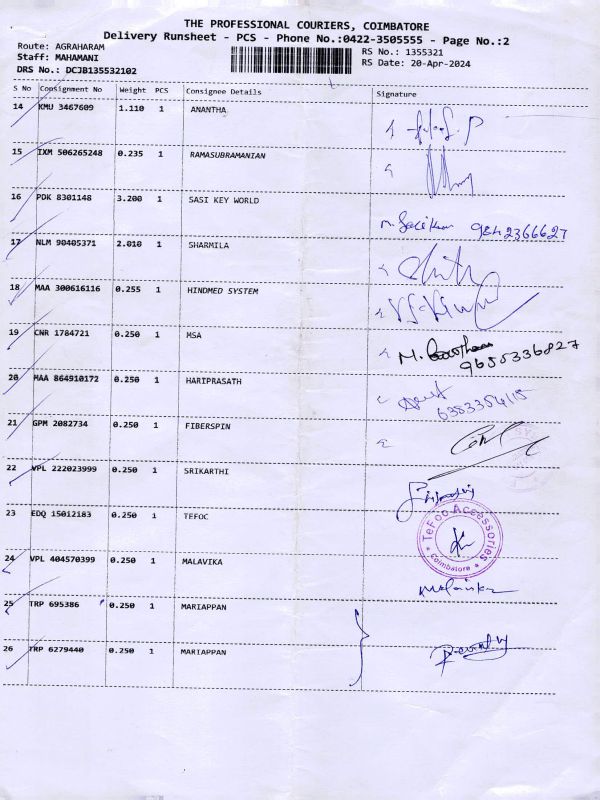 THE PROFESSIONAL COURIERS, COIMBATORE
Delivery Runsheet - PCS - Phone No.:0422-3505555 - Page No.:2
Route: AGRAHARAM
RS No.: 1355321
Staff: MAHAMANI
RS Date: 20-Apr-2024
DRS No.: DCJB135532102
S No Consignment No Weight PCS Consignee Details Signature
14 KMU 3467609 1.110 1 ANANTHA
15 IXM 506265248 0.235 1 RAMASUBRAMANIAN
16 PDK 8301148 3.200 1 SASI KEY WORLD
9842366627
17 NLM 90405371 2.010 1 SHARMILA
18 MAA 300616116 0.255 1 HINDMED SYSTEM
19 CNR 1784721 0.250 1 MSA
M. Gowtham
9655336827
20 MAA 864910172 0.250 1 HARIPRASATH
6383354115
21 GPM 2082734 0.250 1 FIBERSPIN
22 VPL 222023999 0.250 1 SRIKARTHI
23 EDQ 15012183 0.250 1 TEFOC
TeFoc Accessories
Coimbatore
24 VPL 404570399 0.250 1 MALAVIKA
Malavika
25 TRP 695386 0.250 1 MARIAPPAN
26 TRP 6279440 0.250 1 MARIAPPAN